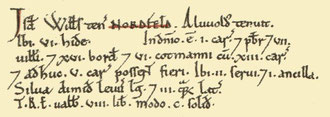 Isd Willś ten NORDFELD. Aluuold tenuit.
Ibi.VI. hidę. In dnio. ē.I. car. ⁊ pbr ⁊ un
uill's ⁊ XVI. bord ⁊ VI. cotmanni cū. XIII. car
⁊ adhuc. V. car̄ posseṅt fieri. Ibi.II. serui.⁊ I. ancilla.
Silua dimid leuu lg. ⁊ III. qrẕ lat.
T.R.E. ualb̄. VIII. lib̄. modo. c. solid.